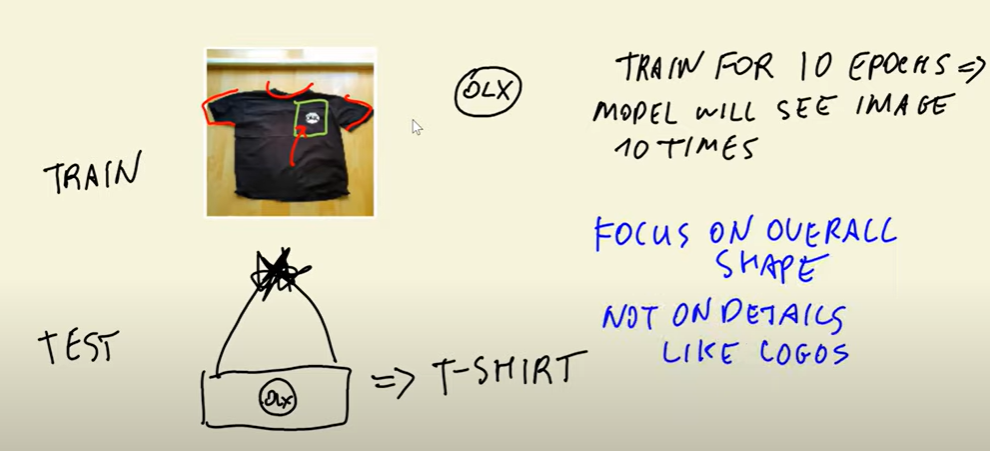 TRAIN
DLX
TRAIN FOR 10 EPOCHS =>
MODEL WILL SEE IMAGE
10 TIMES
FOCUS ON OVERALL
SHAPE
NOT ON DETAILS
LIKE LOGOS
TEST
DLX
=> T-SHIRT